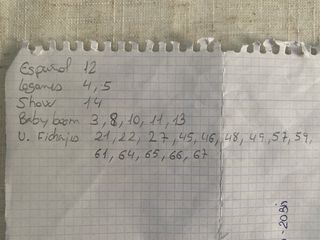 Español 12
Leganes 4, 5
Show 14
Baby boom 3, 8, 10, 11, 13
U. Fichajes 21, 22, 27, 45, 46, 48, 49, 57, 59,
61, 64, 65, 66, 67